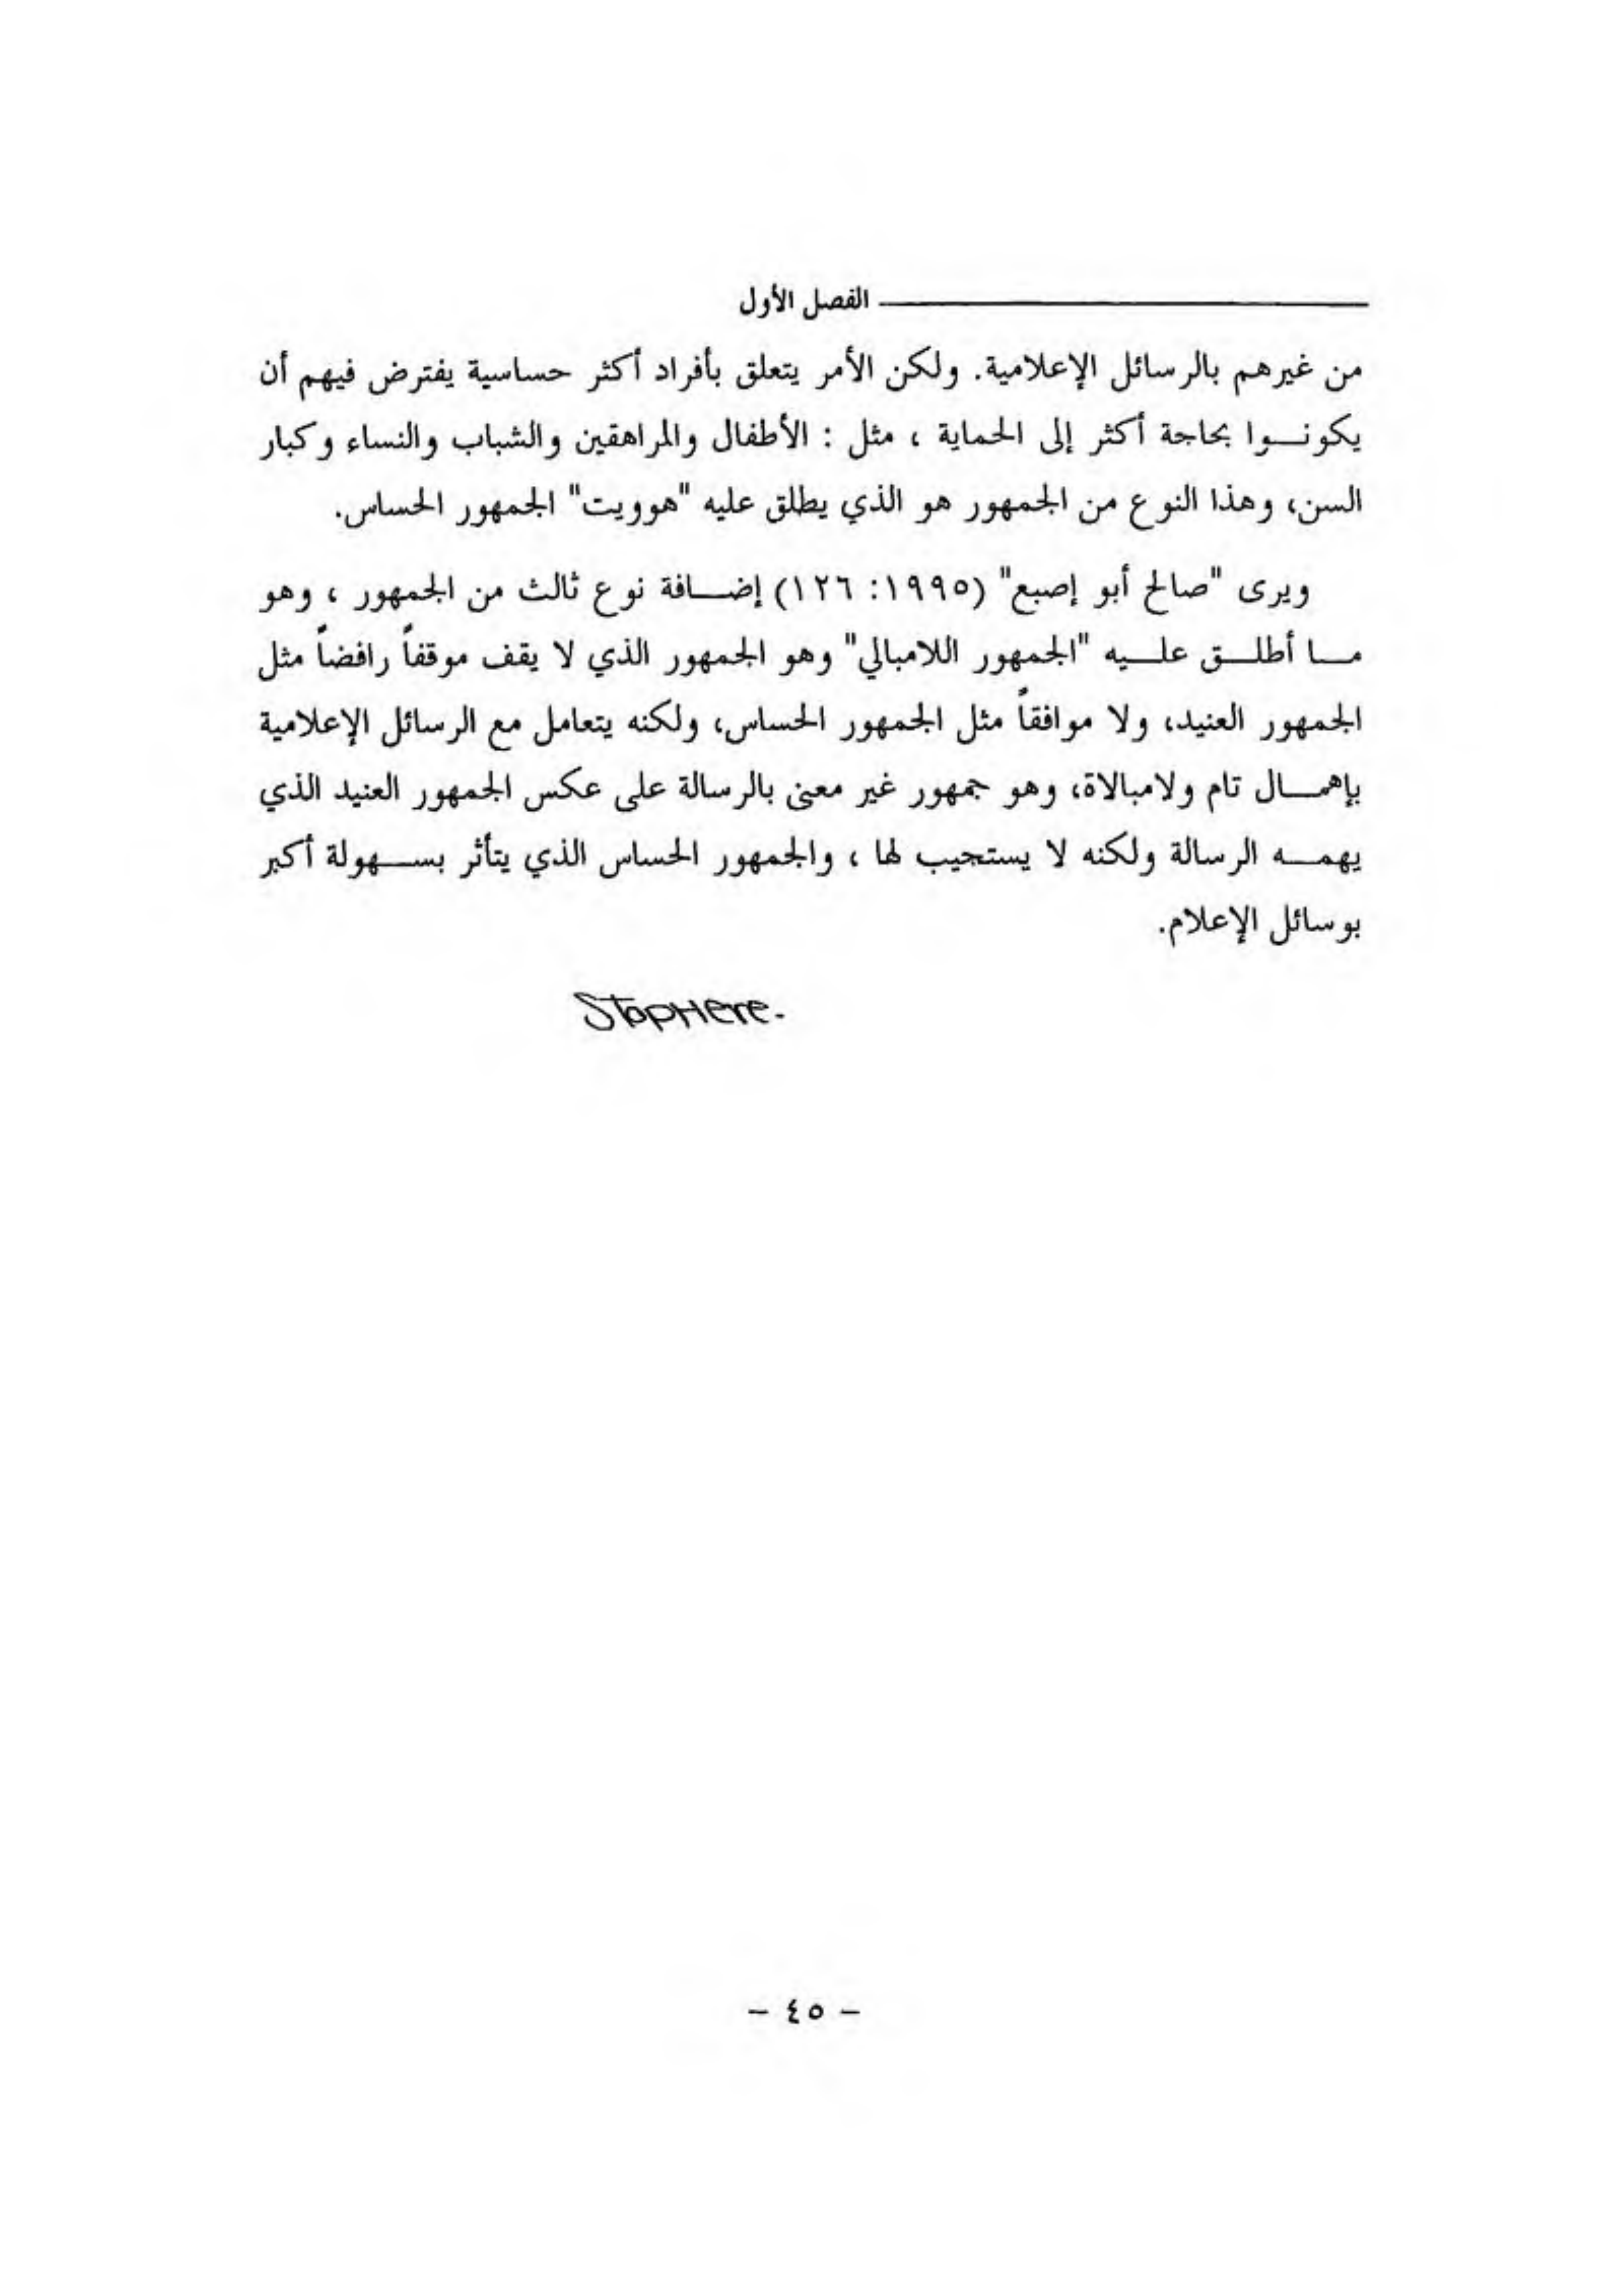 الفصل الأول
من غيرهم بالرسائل الإعلامية. ولكن الأمر يتعلق بأفراد أكثر حساسية يفترض فيهم أن
يكونــوا بحاجة أكثر إلى الحماية ، مثل : الأطفال والمراهقين والشباب والنساء وكبار
السن، وهذا النوع من الجمهور هو الذي يطلق عليه "هوويت" الجمهور الحساس.
ويرى "صالح أبو إصبع" (١٩٩٥: ١٢٦) إضــافة نوع ثالث من الجمهور ، وهو
مــا أطلــق علــيه "الجمهور اللامبالي" وهو الجمهور الذي لا يقف موقفاً رافضاً مثل
الجمهور العنيد، ولا موافقاً مثل الجمهور الحساس، ولكنه يتعامل مع الرسائل الإعلامية
بإهمــال تام ولامبالاة، وهو جمهور غير معنى بالرسالة على عكس الجمهور العنيد الذي
يهمــه الرسالة ولكنه لا يستجيب لها ، والجمهور الحساس الذي يتأثر بســهولة أكبر
بوسائل الإعلام.
StopHere.
- ٤٥ -